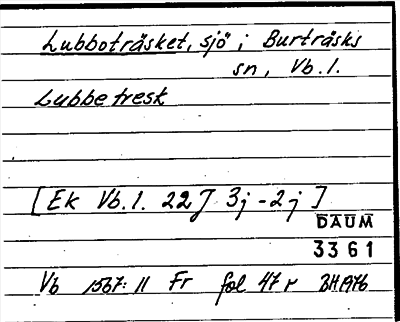 Lubboträsket, sjö i Burträsks
sn, Vb.l.
Lubbe tresk
[Ek Vb.l. 22J 3j-2j]
DAUM
3361
Vb 1567:11 Fr fol 47 r BH1976